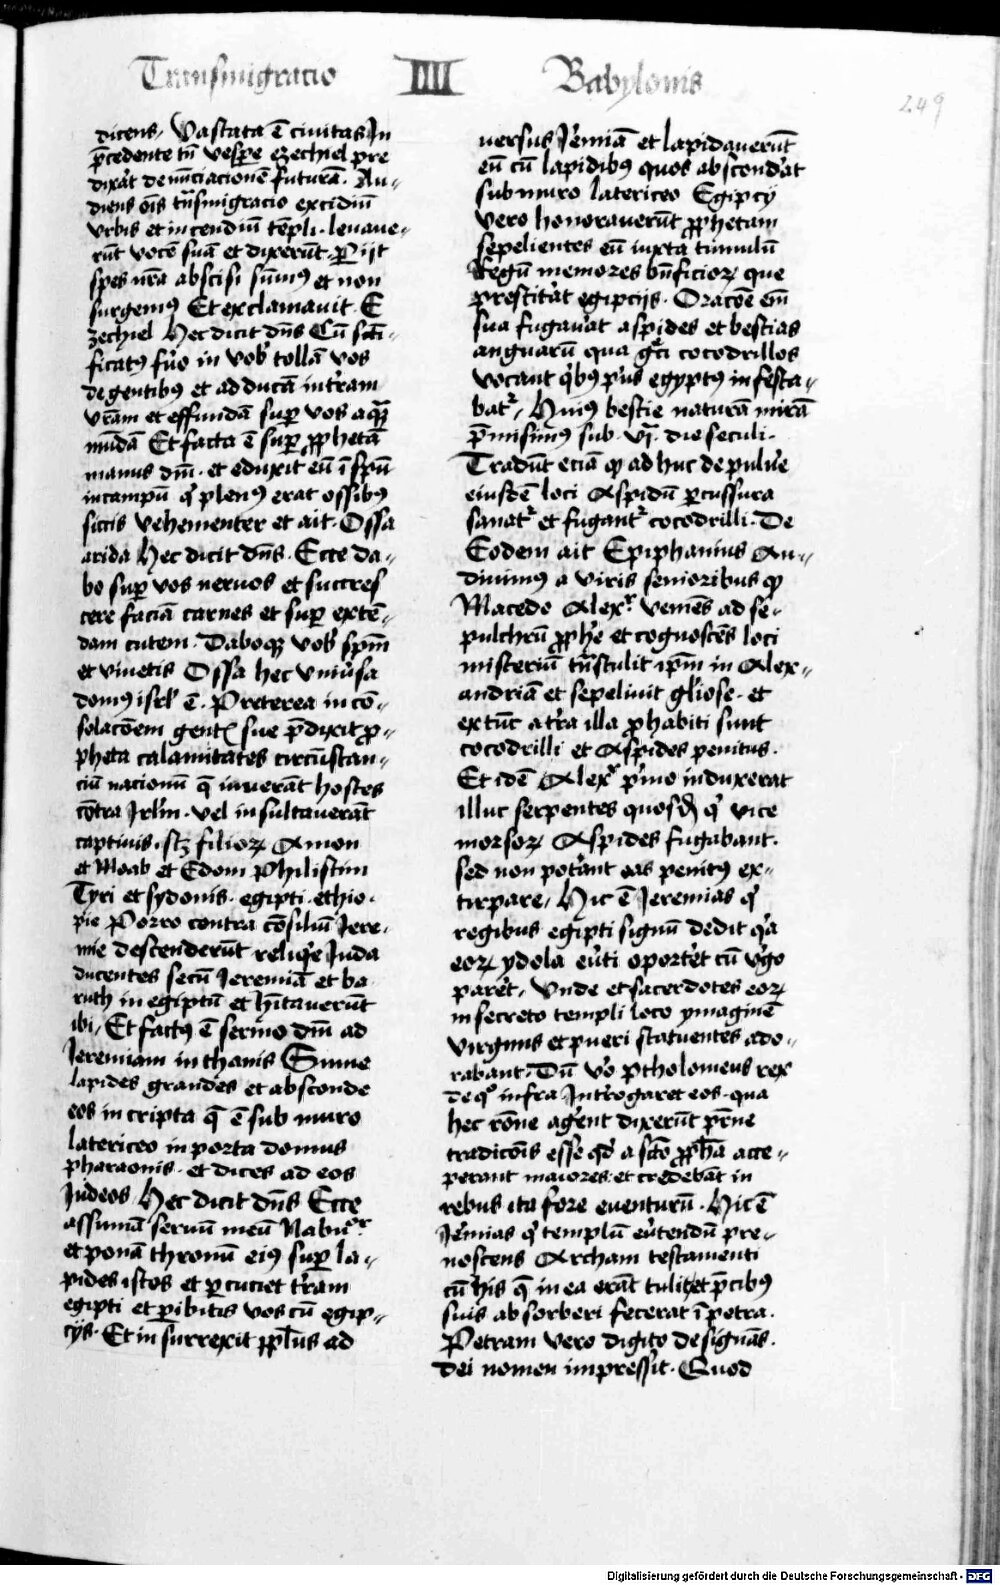 Transmigracio IIII Babylonis
249
dicens, Vastata ē ciuitas In
p̄cedente tn̄ vesp̱e ezechiel pre
dixa̓t denūciacionē futurā. Au-
diens oīs tn̄smigracio excidiū
vrbis et incendiū tēpli. leuaue-
rūt vocē suā et dixerūt. P̱ijt
spes nr̄a abscisi sum̄⁹ et non
surgem⁹ Et exclamauit. E
zechiel Hec dicit dn̄s Cū scti-
ficat⁹ fu̓o in vob̓ tollā vos
de gentibus et adducā in tr̓am
vr̄am et effundā super vos aquā
mūdā Et facta ē super ꝓphetā
manus dn̄i. et eduxit eū ī spū
in campū q̓ plen⁹ erat ossibus
siccis vehementer et ait. Ossa
arida Hec dicit dn̄s. Ecce da-
bo super vos neruos et succres
cere faciā carnes et super extē-
dam cutem. Daboqꝫ vob̓ spm̄
et viuetis Ossa hec vniu̓sa
dom⁹ isrl̓ ē. Preterea in cō-
solacōem gent̓ sue p̄dixit ꝓ-
pheta calamitates circūstan-
ciū nacionū q̄ iuuerāt hostes
cōtra Jrlm̄. vel insultauerāt
captiuis. scꝫ filioꝝ Amon
et Moab et Edom Philistim
Tyri et sydonis. egipti. ethio.
pie Porro contra cōsiliū Jere-
mie descenderūt reliq̓e Iuda
ducentes secū Jeremiā et ba
ruth in egiptū et hītauerūt
ibi, Et fact⁹ ē sermo dn̄i ad
Jeremiam in thanis Sume
lapides grandes et absconde
eos in cripta q̄ ē sub muro
latericeo in porta domus
pharaonis. et dices ad eos
Judeos, Hec dicit dn̄s Ecce
assumā seruū meū Nabuᵒʳ
et ponā thronū ei⁹ super la-
pides istos et p̱cuciet tr̓am
egipti et p̱ibitis vos cū egip-
cijs. Et insurrexit ppl̓us ad
uersus Je̓miā et lapidauerūt
eū cū lapidibus quos abscondr̓at
sub muro latericeo Egipcij
vero honorauerūt ꝓphetam
sepelientes eū iuxta tumulū
Regū memores bn̄ficioꝝ que
prestite̓at egipcijs. Oracōe em̄
sua fugau̓at aspides et bestias
anguarū qua gr̄ci cocodrillos
vocant q̓bus pri⁹ egyptus infesta-
batʳ, Hui⁹ bestie naturā mirā
p̄misim⁹ sub. vj. die seculi.
Tradūt eciā ꝙ adhuc de pulu̓e
eiusdē loci Aspidū p̱cussura
sanatʳ et fugantʳ cocodrilli. De
Eodem ait Epiphanius Au-
diuim⁹ a viris senioribus ꝙ
Macedo Alexʳ veniēs ad se-
pulchrū ꝓphe̓ et cognoscēs loci
misteriū tn̄stulit ip̄m in Alex-
andriā et sepeliuit gl̓iose. et
extūc a tr̓a illa ꝓhabiti sunt
cocodrilli et Aspides penitus.
Et idē Alexʳ p̓mo induxerat
illuc serpentes quosdā q̓ vice
morsoꝝ Aspides fugabant.
sed non pote̓ant eas penit⁹ ex-
tirpare, Hic ē Jeremias q̓
regibus egipti signū dedit q̓a
eoꝝ ydola eu̓ti oporte̓t cū v̓go
pare̓t, Vnde et sacerdotes eoꝝ
in secreto templi loco ymaginē
virginis et pueri statuentes ado-
rabant. Dū v̓o ptholomeus rex
de q̊ infra Jntr̓rogaret eos. qua
hec rōne age̓nt dixerūt pr̄ne
tradicōis esse qd̓ a scō ꝓphā acce-
perant maiores. et credebāt in
rebus ita fore euenturū. Hic ē
Je̓mias q̓ templū eu̓tendū pre-
noscens Archam testamenti
cū his q̄ in ea erāt tulit et p̄cibus
suis absorberi fecerat ī petra.
Petram vero digito designās.
dei nomen impressit. Quod
Digitalisierung gefördert durch die Deutsche Forschungsgemeinschaft - DFG